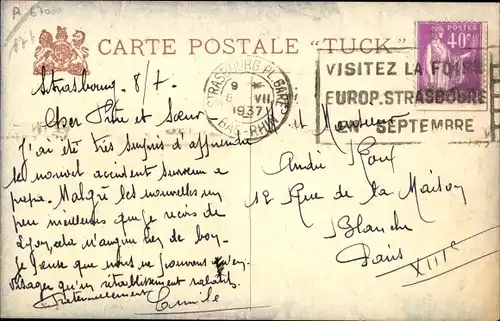 A 67000
CARTE POSTALE "TUCK"
POSTES
40c
STRASBOURG PL. GARE
9 *
6 VII
1937
BAS-RHIN
VISITEZ LA FOIRE
EUROP. STRASBOURG
EN SEPTEMBRE
Strasbourg. 8/7.
Cher Frère et Sœur
J'ai été très surpris d'apprendre
le nouvel accident survenu a
papa. Malgré les nouvelles un
peu meilleures que je reçois de
Lyon, cela n'augure rien de bon.
Je pense que nous ne pouvons qu'en-
visager qu'un rétablissement relatif.
Fraternellement Camille
et Monsieur
André Roux
12 Rue de la Maison
Blanche
Paris
XIIIe